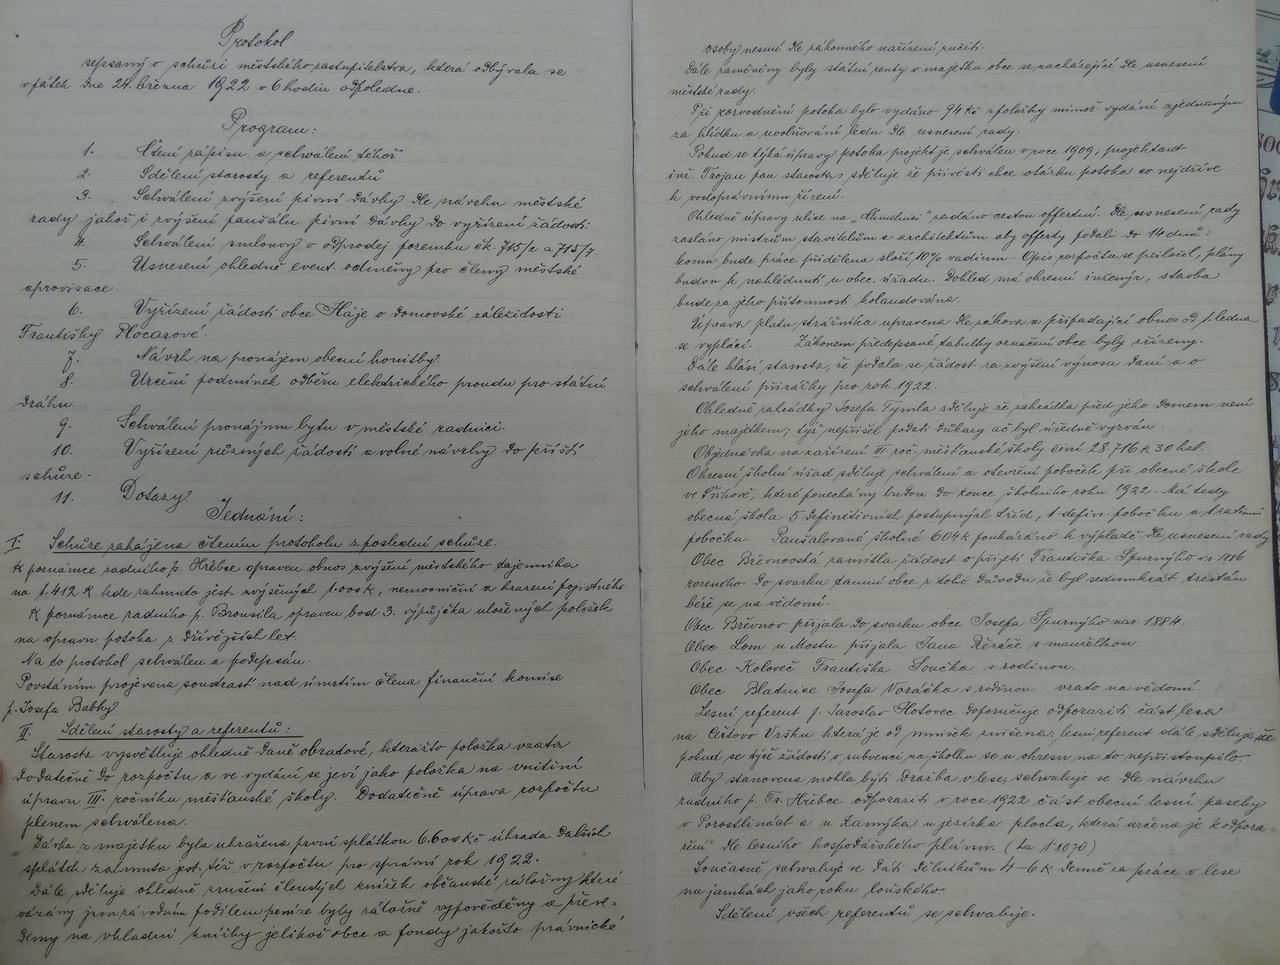 Protokol
sepsaný o schůzi městského zastupitelstva, která odbývala se
v pátek dne 24. března 1922 v 6 hodin odpoledne.
Program:
1. Čtení zápisu a schválení téhož
2. Sdělení starosty a referentů
3. Schválení zvýšení pivní dávky dle návrhu městské
rady jakož i zvýšení paušálu pivní dávky do vyřízení žádosti.
4. Schválení smlouvy o odprodej pozemku čk. 715/2 a 715/7
5. Usnesení ohledně event. odměny pro členy městské
aprovisace.
6. Vyřízení žádosti obce Háje o domovské záležitosti
Františky Plocarové.
7. Návrh na pronájem obecní honitby.
8. Určení podmínek odběru elektrického proudu pro státní
dráhu.
9. Schválení pronájmu bytu v městské radnici.
10. Vyřízení různých žádostí a volné návrhy do příští
schůze.
11. Dotazy
Jednání:
I. Schůze zahájena čtením protokolu z poslední schůze.
K poznámce radního p. Hřebce opraven obnos zvýšení městského tajemníka
na 1.412 K kde zahrnuto jest zvýšených 1.000 K, nemocniční a hrazení pojistného
K poznámce radního p. Brousila opraven bod 3. výpůjčka uložených položek
na opravu potoka z dřívějších let.
Na to protokol schválen a podepsán.
Povstáním projevena soustrast nad úmrtím člena finanční komise
p. Josefa Babky
II. Sdělení starosty a referentů:
Starosta vysvětluje ohledně daně obratové, kterážto položka vzata
dodatečně do rozpočtu a ve vydání se jeví jako položka na vnitřní
úpravu III. ročníku měšťanské školy. Dodatečně úprava rozpočtu
plenem schválena.
Dávka z majetku byla uhražena první splátkou 6.600 Kč úhrada dalších
splátek zahrnuta jest též v rozpočtu pro správní rok 1922.
Dále sděluje ohledně zrušení členských knížek občanské záložny které
vázány jsou závodním podílem peníze byly zálošně vypověděny a převe-
deny na vkladní knížky jelikož obce a fondy jakožto právnické
osoby nesmí dle zákonného nařízení ručiti.
Dále zaměněny byly státní renty v majetku obce se nacházející dle usnesení
městské rady.
Při rozvodnění potoka bylo vydáno 94 Kč z položky mimoř. vydání zjednaným
za hlídku a uvolňování ledu dle usnesení rady.
Pokud se týká úpravy potoka projekt je schválen v roce 1909, projektant
inž. Trojan pan starosta, sděluje že přivésti chce otázku potoka co nejdříve
k vodoprávnímu řízení.
Ohledně úpravy ulice na „Chmelnici" zadáno cestou offertní. Dle usnesení rady
zasláno mistrům stavitelům a architektům aby offerty podali do 14 dnů:
komu bude práce přidělena složí 10% vadium. Opis rozpočtu se přiložil, plány
budou k nahlédnutí u obec. úřadu. Dohled má okresní inženýr, stavba
bude za jeho přítomnosti kolaudována.
Úprava platu strážníka upravena dle zákona a připadající obnos od 1. ledna
se vyplácí. Zákonem předepsané tabulky označení obce byly zřízeny.
Dále hlásí starosta, že podala se žádost za zvýšení výnosu daní a o
schválení přirážky pro rok 1922.
Ohledně zahrádky Josefa Tymla sděluje že zahrádka před jeho domem není
jeho majetkem; týž nepřišel podati důkazy ač byl úředně vyzván.
Objednávka na zařízení III. roč. měšťanské školy činí 28.716 K 30 hal.
Okresní školní úřad sděluje schválení a otevření poboček při obecné škole
ve, které ponechány budou do konce školního roku 1922. Má tedy
obecná škola 5 definitivních postupných tříd, 1 defin. pobočku a
pobočku. Paušalované školné 604 K poukázáno k výplatě dle usnesení rady
Obec Břevnovská zamítla žádost o přijetí Františka Spurného nar. 1886
zrozeného do svazku tamní obce z toho důvodu že byl sedumkrát trestán
béře se na vědomí.
Obec Břevnov přijala do svazku obce Josefa Spurného nar. 1884.
Obec Lom u Mostu přijala Jana s manželkou.
Obec Koloveč Františka Součka s rodinou.
Obec Blatnice Josefa Voráčka s rodinou vzato na vědomí.
Lesní referent p. Jaroslav Hotovec doporučuje odporaziti část lesa
na Čertovo Vršku která je od mnišek zničena: lesní referent dále sděluje že
pokud se týče žádosti o subvenci na školku se u okresu na to nepřistoupilo.
Aby stanovena mohla býti dražba v lese, schvaluje se dle návrhu
radního p. Fr. Hřebce odporaziti v roce 1922 část obecní lesní paseky
v Porostlinách a u Zamýka u jezírka plocha, která určena je k odpora-
žení dle lesního hospodářského plánu. (ha 1.8070)
Současně schvaluje se dáti dělníkům 4-6 K denně za práce v lese
na jamkách jako roku loňského.
Sdělení všech referentů se schvaluje.